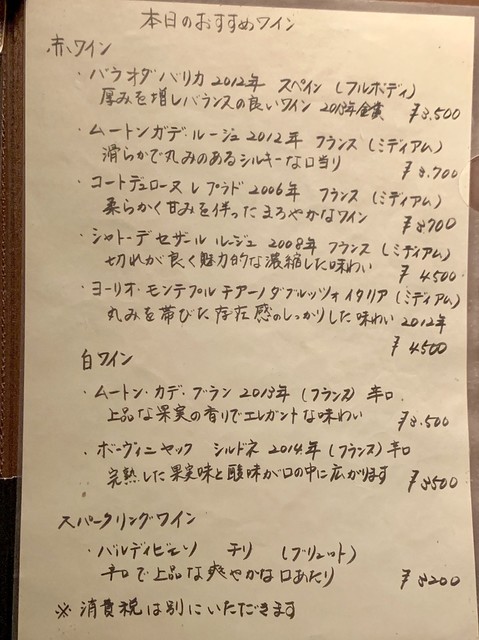 本日のおすすめワイン
赤ワイン
・バラオダバリカ 2012年 スペイン (フルボディ)
厚みを増しバランスの良いワイン 2013年金賞 ¥3,500
・ムートンガデ・ルージュ 2012年 フランス (ミディアム)
滑らかで丸みのあるシルキーな口当り ¥3,700
・コートデュローヌ レプラド 2006年 フランス (ミディアム)
柔らかく甘みを伴ったまろやかなワイン ¥3700
・シャトーデセザール ルージュ 2008年 フランス (ミディアム)
切れが良く魅力的な濃縮した味わい ¥4,500
・ヨーリオ・モンテプルチアーノダブルッツォ イタリア (ミディアム)
丸みを帯びた存在感のしっかりした味わい 2012年
¥4,500
白ワイン
・ムートン・カデ・ブラン 2013年 (フランス) 辛口
上品な果実の香りでエレガントな味わい ¥3,500
・ボーヴィニャック シルドネ 2014年 (フランス) 辛口
完熟した果実味と酸味が口の中に広がります ¥3500
スパークリングワイン
・バルディビエソ チリ (ブリュット)
辛口で上品な爽やかな口あたり ¥3200
※ 消費税は別にいただきます